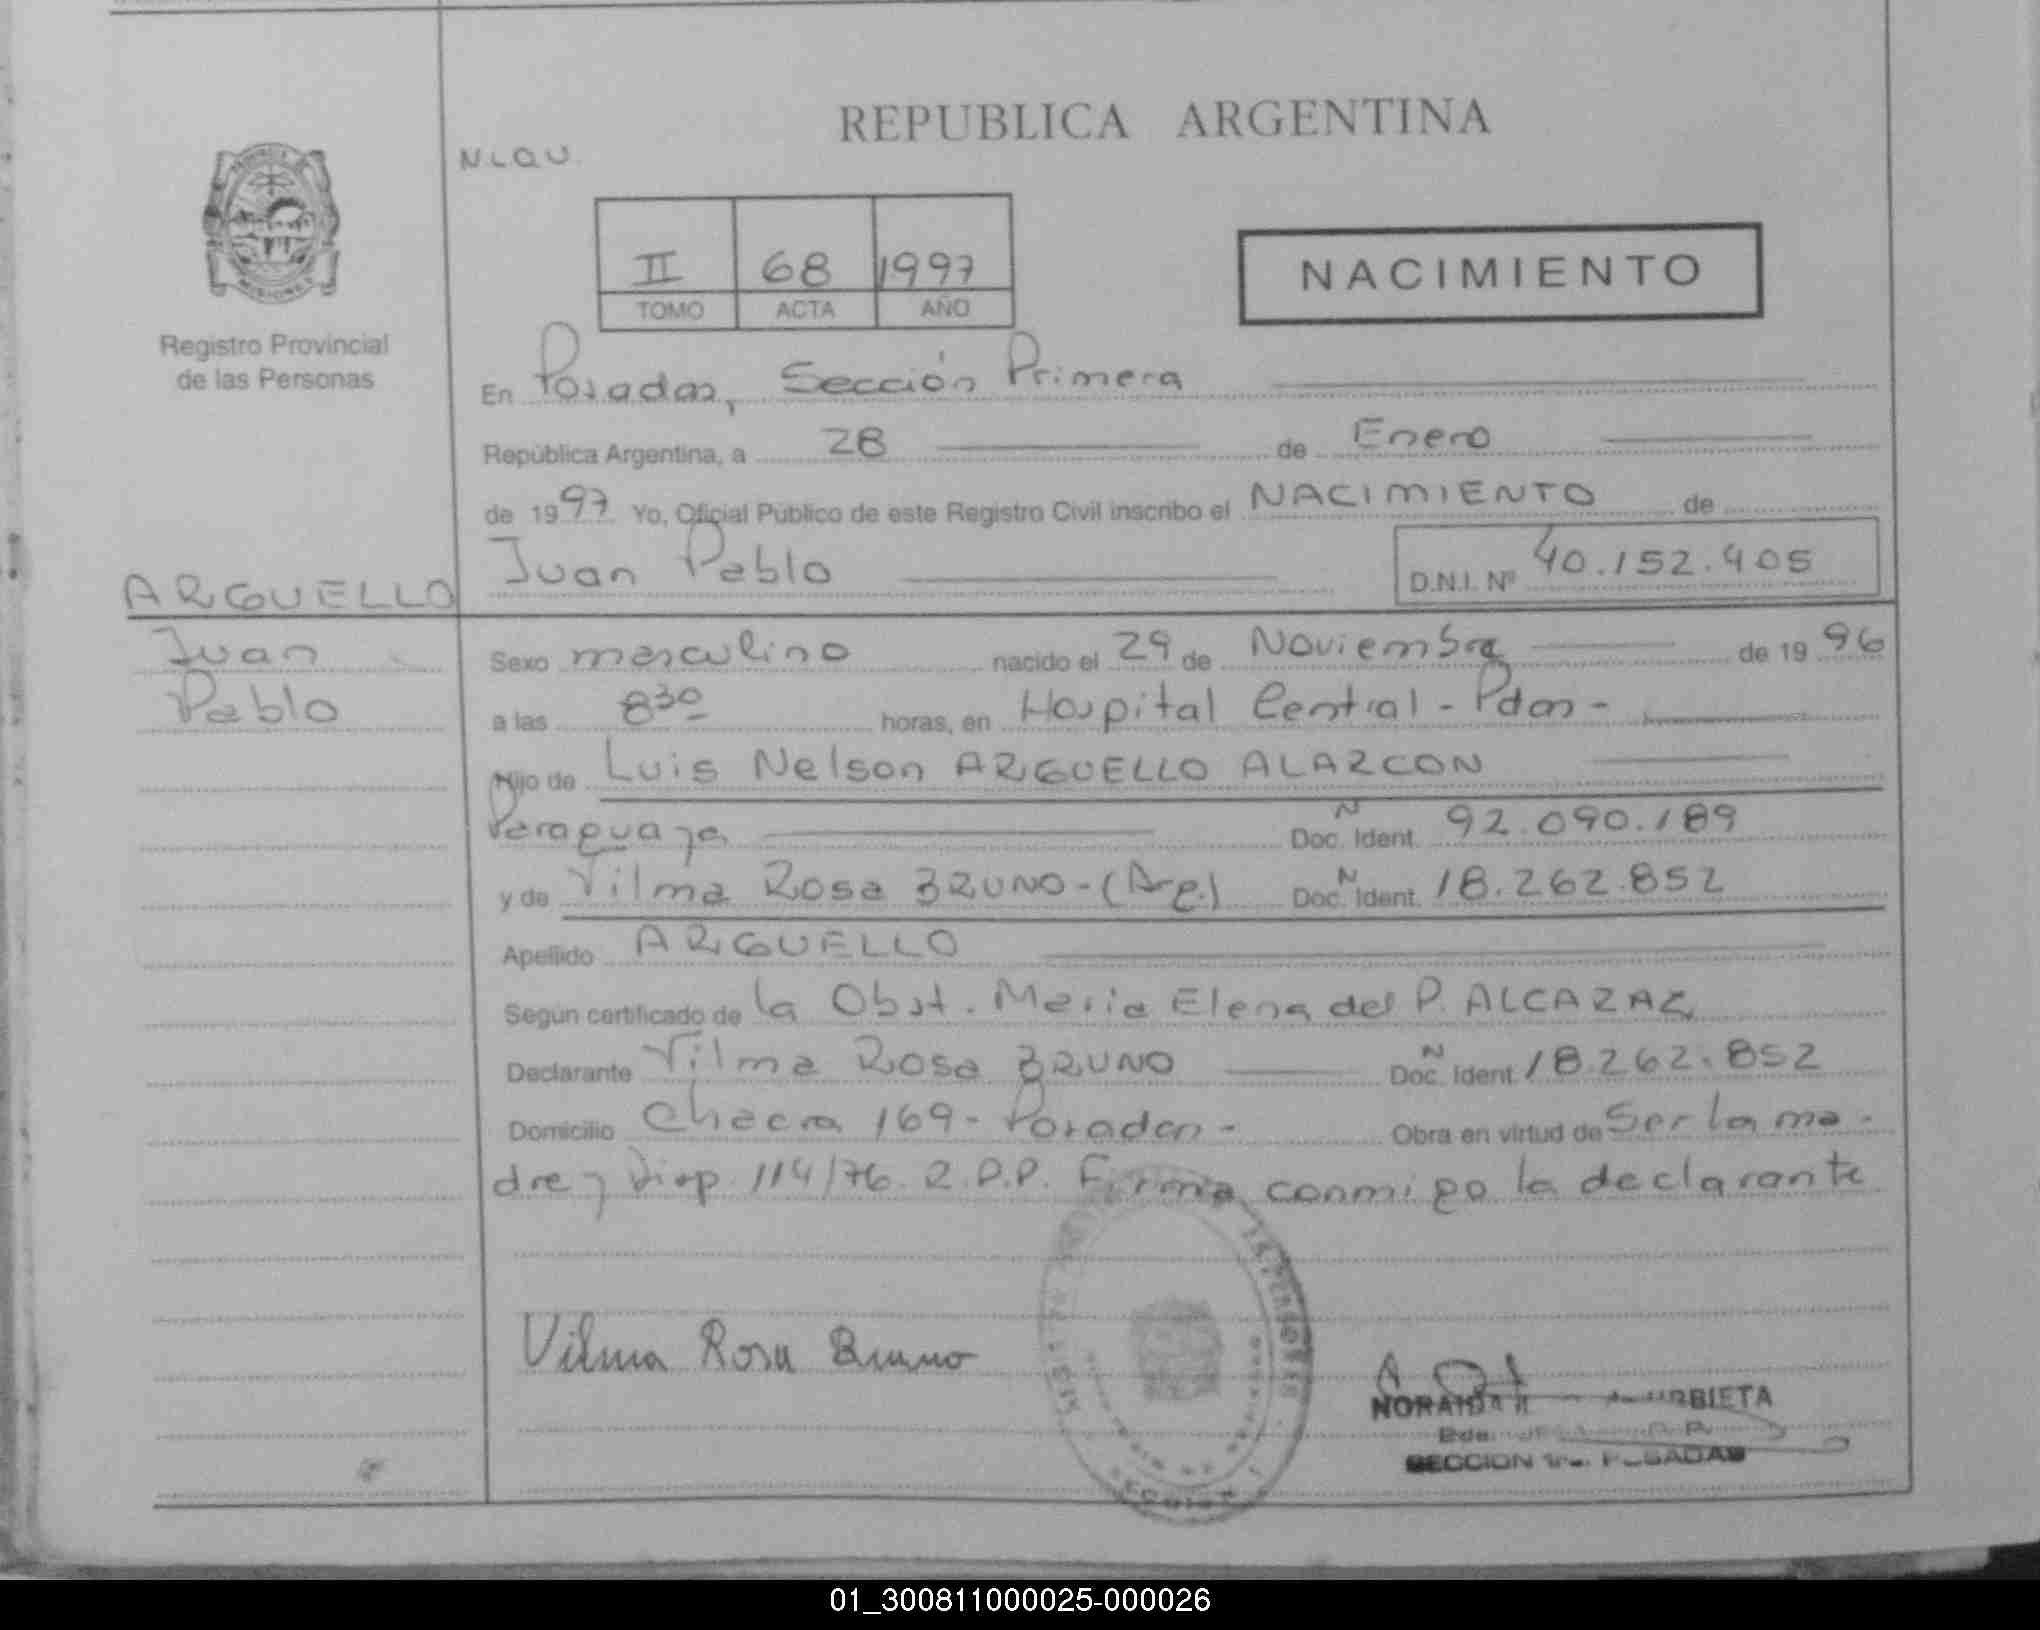 REPUBLICA ARGENTINA
N L Q U
II 68 1997
TOMO ACTA AÑO
NACIMIENTO
Registro Provincial
de las Personas
En Posadas, Sección Primera
República Argentina, a 28 de Enero
de 1997 Yo, Oficial Público de este Registro Civil inscribo el NACIMIENTO de
ARGUELLO Juan Pablo D.N.I. Nº 40.152.405
Juan
Pablo
Sexo masculino nacido el 29 de Noviembre de 1996
a las 8 30 horas, en Hospital Central - Pdas -
Hijo de Luis Nelson ARGUELLO ALARCON
Paraguaya Doc. N Ident. 92.090.189
y de Vilma Rosa BRUNO - (Arg.) Doc. N Ident. 18.262.852
Apellido ARGUELLO
Según certificado de la Obst. Maria Elena del P. ALCARAZ
Declarante Vilma Rosa BRUNO Doc. N Ident. 18.262.852
Domicilio Chacra 169 - Posadas - Obra en virtud de Ser la ma-
dre y Disp. 114/76. R.P.P. Firma conmigo la declarante
Vilma Rosa Bruno
URBIETA
SECCION 1ra. POSADAS
01_300811000025-000026